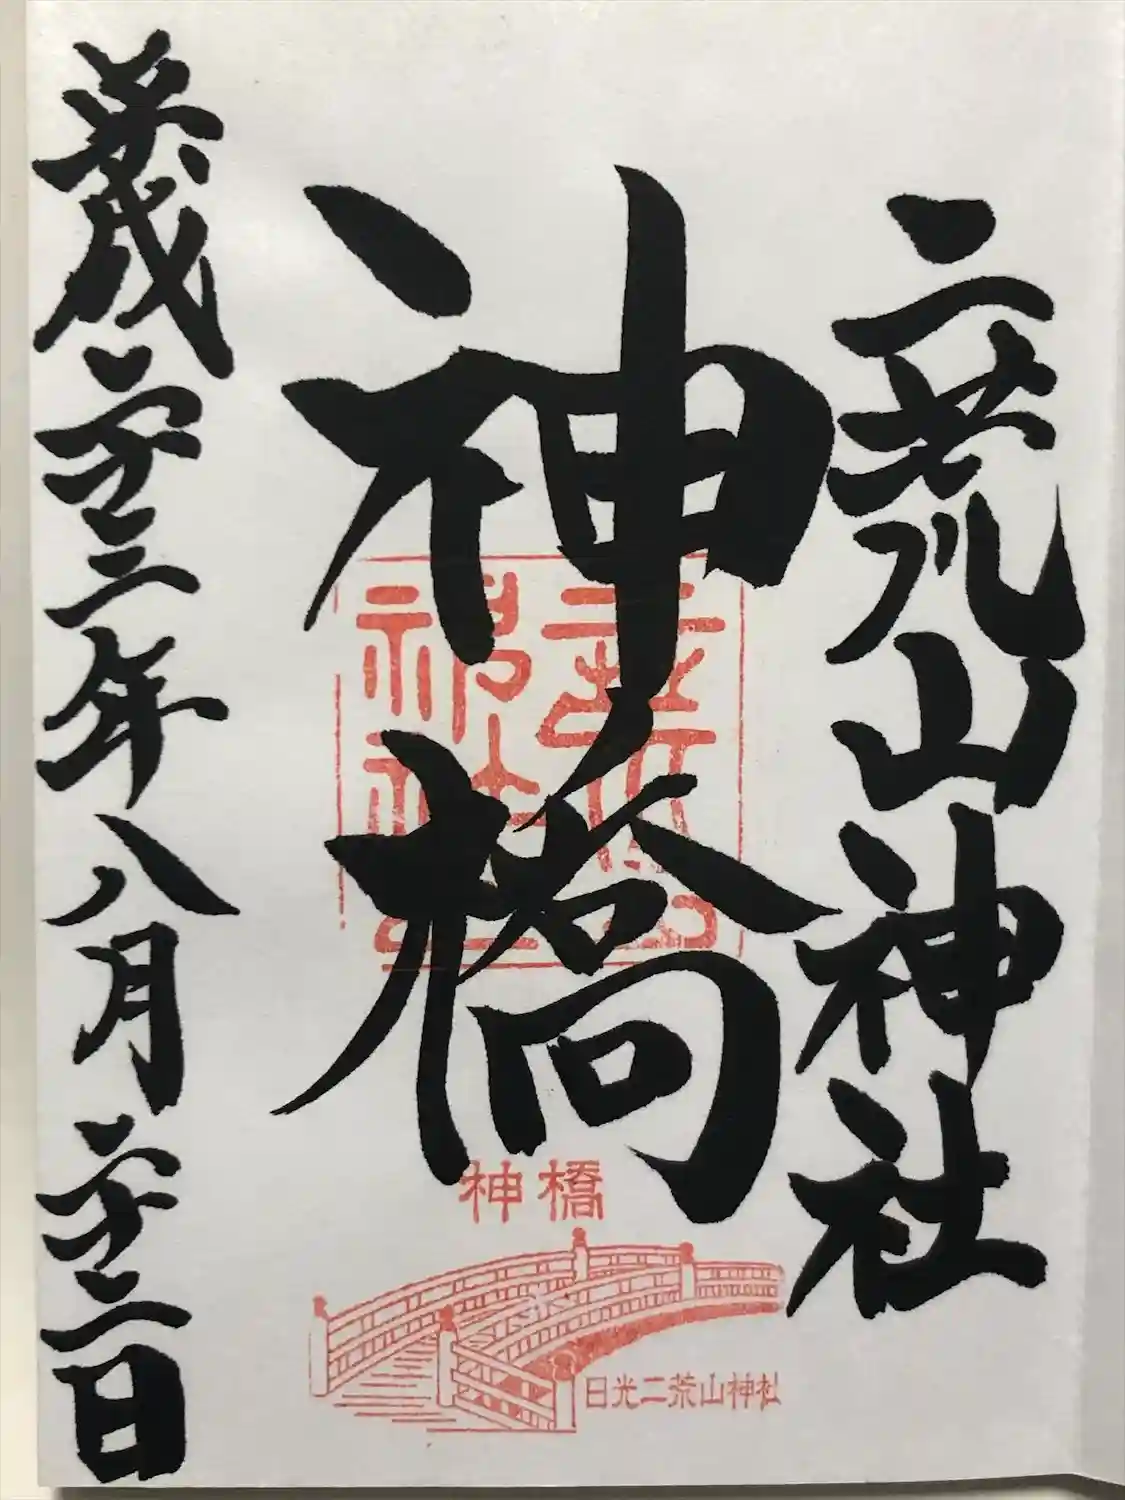 二荒山神社
神橋
平成二十三年八月二十三日
神橋
日光二荒山神社